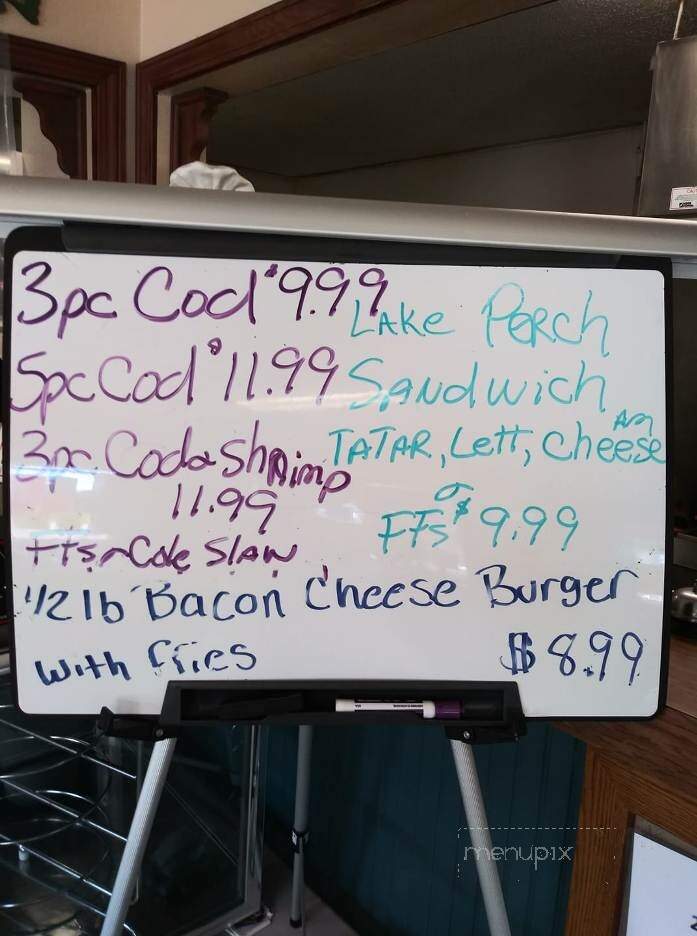 3pc Cod $9.99
5pc Cod $11.99
3pc Cod & Shrimp
11.99
FFs Cole SLAW
LAKE PERCH
SANdwich
TATAR, Lett, Am Cheese
FFs $9.99
1/2 lb Bacon Cheese Burger
with fries $8.99
menupix